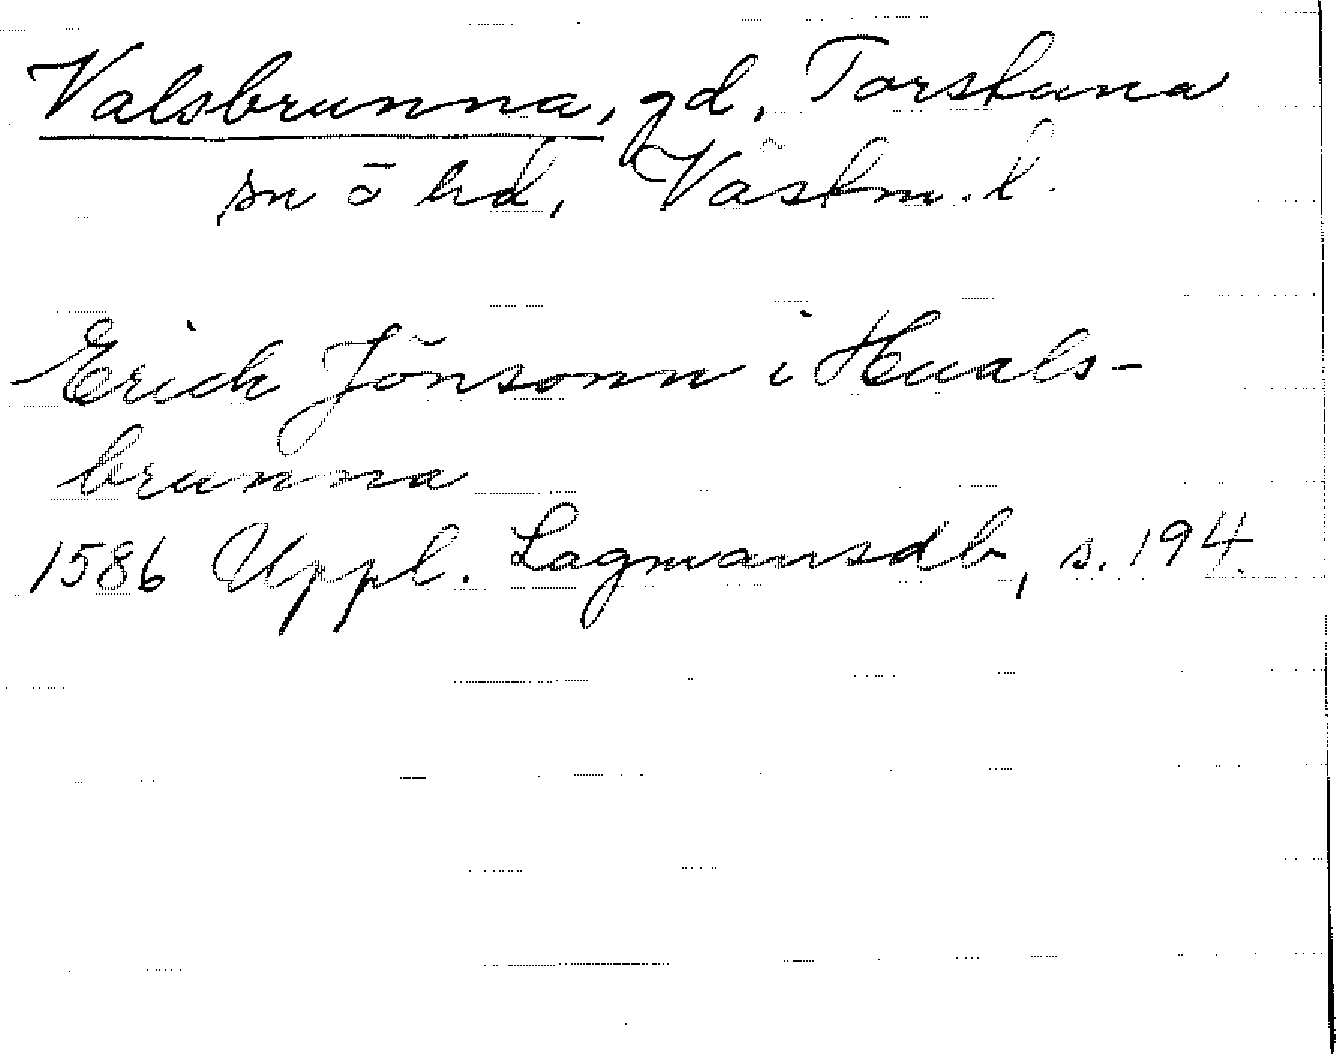 Valsbrunna, gd, Torstuna
sn o hd, Västm. l.
Erich Jönsonn i Huals-
brunna
1586 Uppl. Lagmansdb, s. 194.